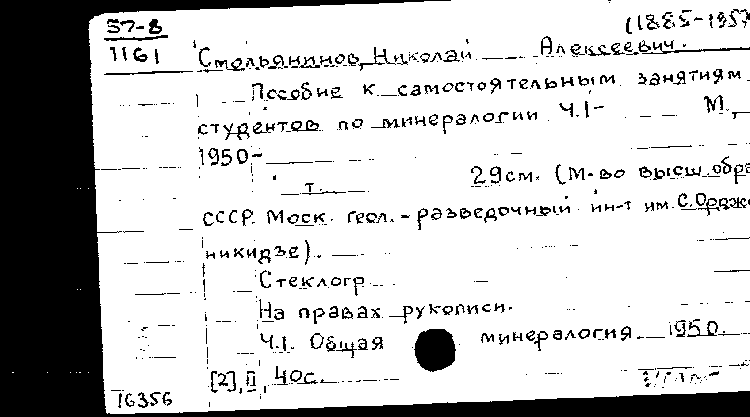 57-8 (1885-1957
1161 Смольянинов, Николай Алексеевич.
Пособие к самостоятельным занятиям
студентов по минералогии Ч.I- М.,
1950-
т. 29см. (М-во высш. обра
СССР. Моск. геол.-разведочный ин-т им. С. Орджо
никидзе).
Стеклогр
На правах рукописи.
Ч.I. Общая минералогия 1950.
[2], II, 40с.
16356